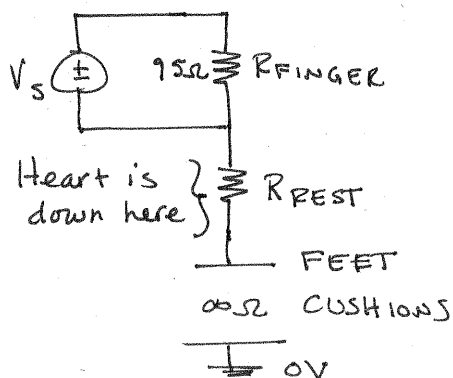 Vs
±
95Ω RFINGER
Heart is
down here
RREST
FEET
∞Ω CUSHIONS
0V